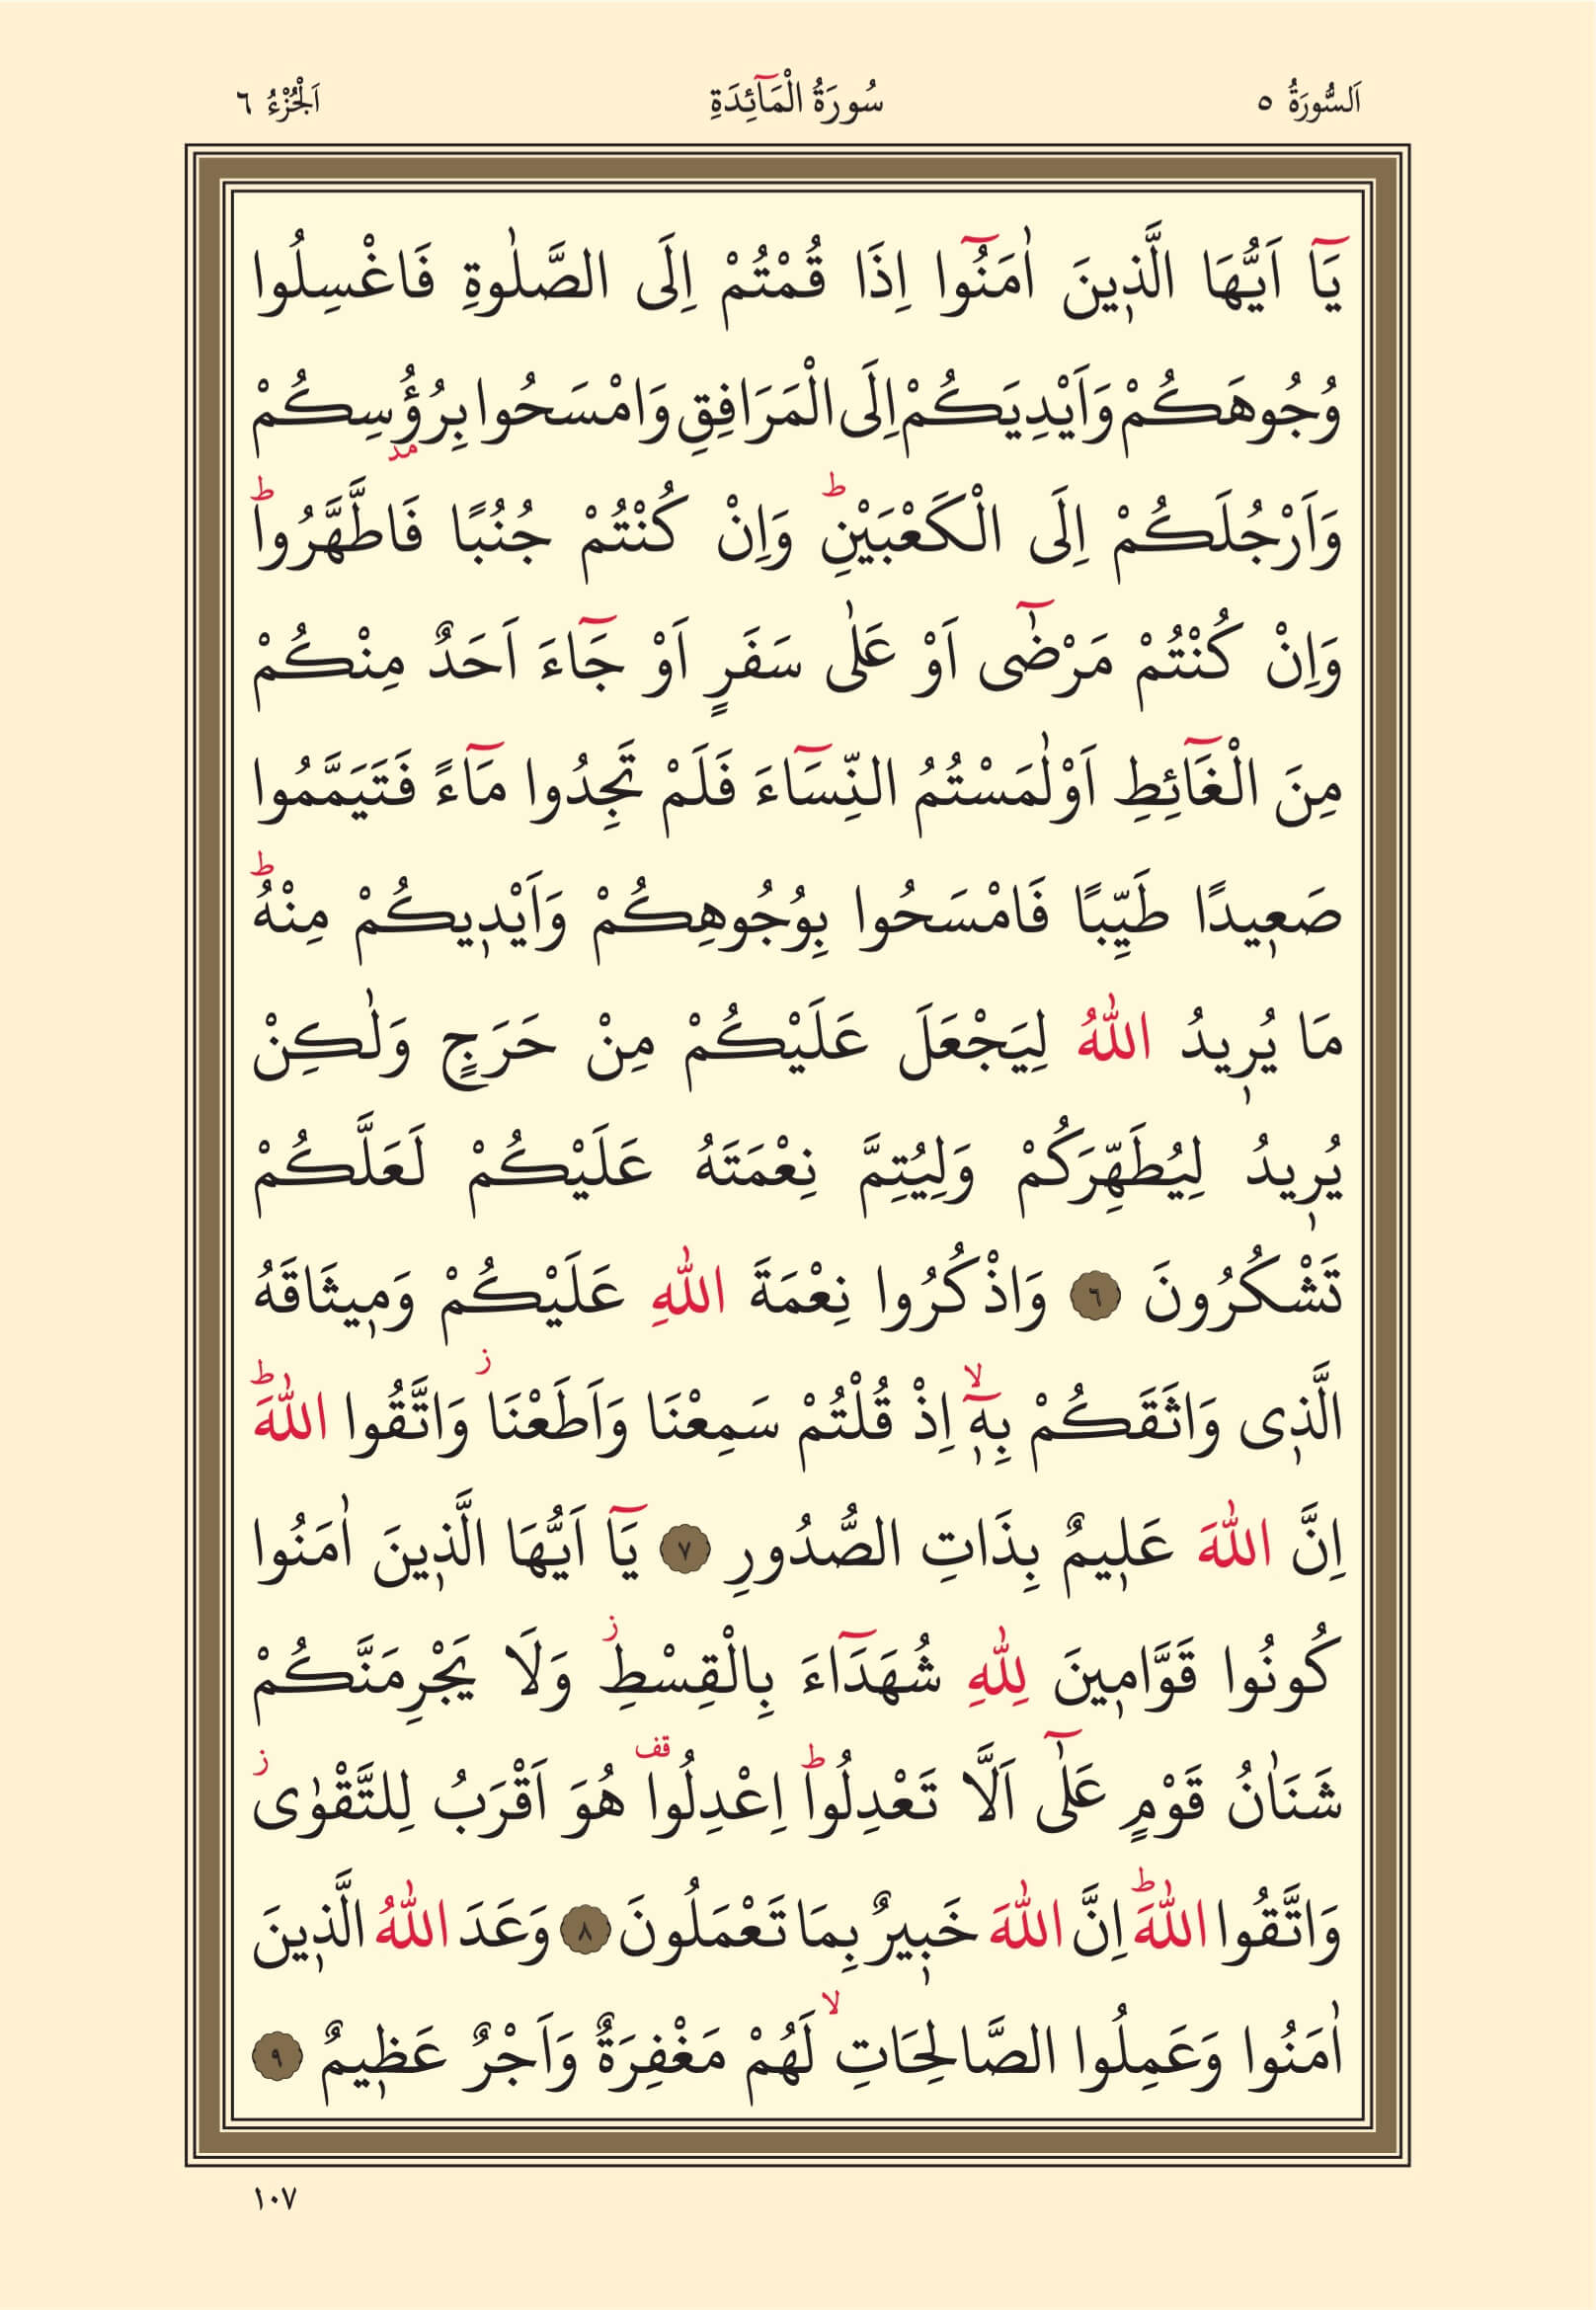 اَلسُّورَةُ ٥ سُورَةُ الْمَٓائِدَةِ اَلْجُزْءُ ٦
يَٓا اَيُّهَا الَّذٖينَ اٰمَنُٓوا اِذَا قُمْتُمْ اِلَى الصَّلٰوةِ فَاغْسِلُوا
وُجُوهَكُمْ وَاَيْدِيَكُمْ اِلَى الْمَرَافِقِ وَامْسَحُوا بِرُؤُ۫سِكُمْ
وَاَرْجُلَكُمْ اِلَى الْكَعْبَيْنِؕ وَاِنْ كُنْتُمْ جُنُبًا فَاطَّهَّرُواؕ
وَاِنْ كُنْتُمْ مَرْضٰٓى اَوْ عَلٰى سَفَرٍ اَوْ جَٓاءَ اَحَدٌ مِنْكُمْ
مِنَ الْغَٓائِطِ اَوْ لٰمَسْتُمُ النِّسَٓاءَ فَلَمْ تَجِدُوا مَٓاءً فَتَيَمَّمُوا
صَعٖيدًا طَيِّبًا فَامْسَحُوا بِوُجُوهِكُمْ وَاَيْدٖيكُمْ مِنْهُؕ
مَا يُرٖيدُ اللّٰهُ لِيَجْعَلَ عَلَيْكُمْ مِنْ حَرَجٍ وَلٰكِنْ
يُرٖيدُ لِيُطَهِّرَكُمْ وَلِيُتِمَّ نِعْمَتَهُ عَلَيْكُمْ لَعَلَّكُمْ
تَشْكُرُونَ ٦ وَاذْكُرُوا نِعْمَةَ اللّٰهِ عَلَيْكُمْ وَمٖيثَاقَهُ
الَّذٖى وَاثَقَكُمْ بِهٖٓۙ اِذْ قُلْتُمْ سَمِعْنَا وَاَطَعْنَاؗ وَاتَّقُوا اللّٰهَؕ
اِنَّ اللّٰهَ عَلٖيمٌ بِذَاتِ الصُّدُورِ ٧ يَٓا اَيُّهَا الَّذٖينَ اٰمَنُوا
كُونُوا قَوَّامٖينَ لِلّٰهِ شُهَدَٓاءَ بِالْقِسْطِؗ وَلَا يَجْرِمَنَّكُمْ
شَنَاٰنُ قَوْمٍ عَلٰٓى اَلَّا تَعْدِلُواؕ اِعْدِلُوا۠ قف هُوَ اَقْرَبُ لِلتَّقْوٰىؗ
وَاتَّقُوا اللّٰهَؕ اِنَّ اللّٰهَ خَبٖيرٌ بِمَا تَعْمَلُونَ ٨ وَعَدَ اللّٰهُ الَّذٖينَ
اٰمَنُوا وَعَمِلُوا الصَّالِحَاتِۙ لَهُمْ مَغْفِرَةٌ وَاَجْرٌ عَظٖيمٌ ٩
١٠٧